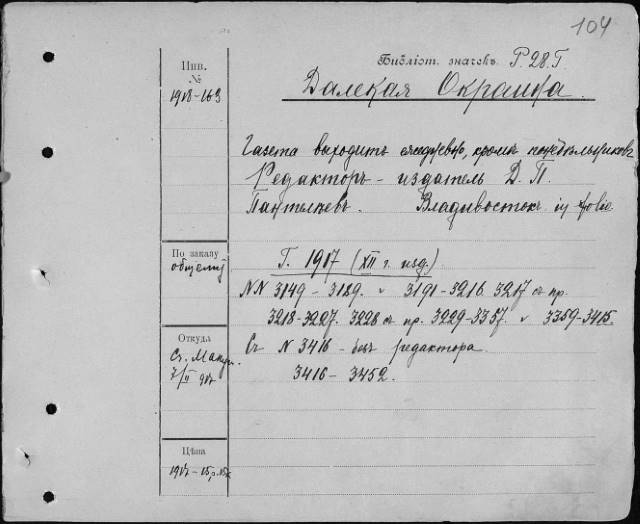 104
Библiот. значекъ Р.28.Г
Далекая Окраина.
Инв.
№
1918-163
Газета выходитъ ежедневно, кромѣ понедѣльниковъ
Редакторъ - издатель Д. П.
Пантелѣевъ. Владивостокъ in folio
По заказу
общему
Г. 1917 (XII г. изд.)
NN 3149 - 3189. 3191-3216. 3217 съ пр.
3218-3227. 3228 съ пр. 3229-3357. 3359-3415.
Откуда
7/II 917
Съ N 3416 - безъ редактора.
3416 - 3452.
Цѣна
1917 - 15 р.